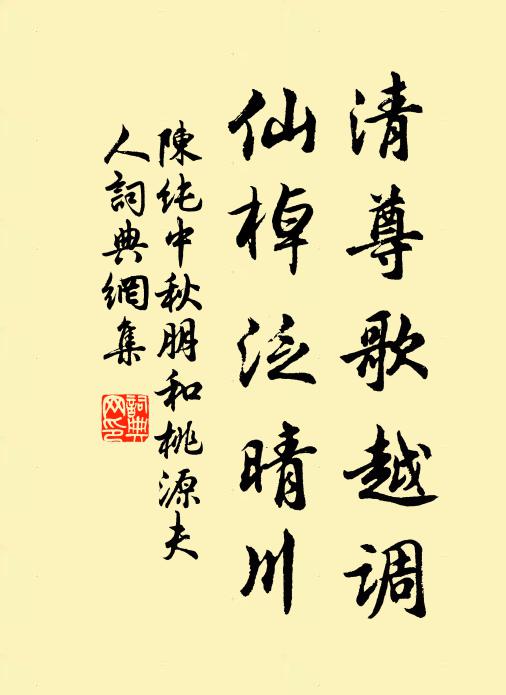 清尊歌越调
仙棹泛晴川
陳純中秋朋和桃源夫
人詞典網集
詞典網印